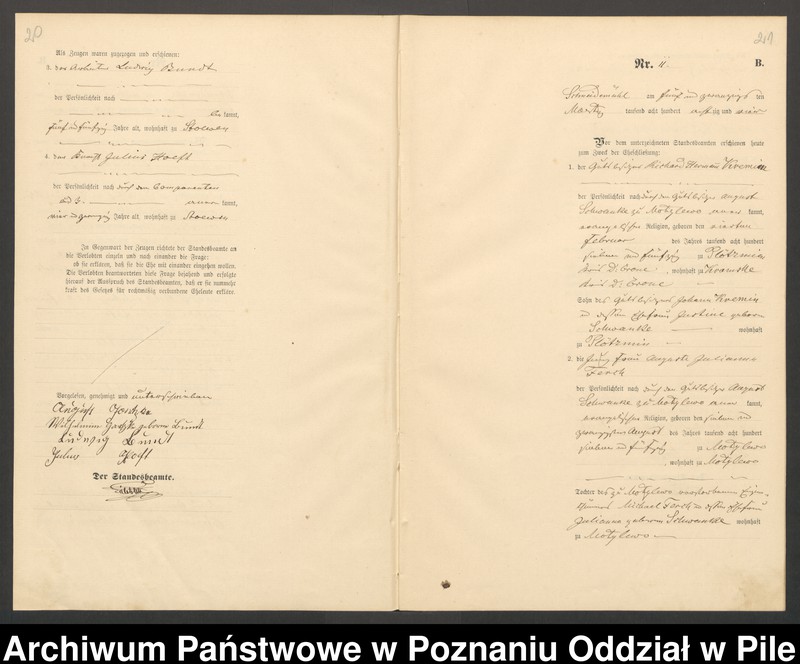 20
Als Zeugen waren zugezogen und erschienen:
3. der Arbeiter Ludwig Bundt
der Persönlichkeit nach
kannt,
fünf und fünfzig Jahre alt, wohnhaft zu Stoewen
4. der Knecht Julius Hoeft
der Persönlichkeit nach durch den Comparenten
ad 3. kannt,
vier und zwanzig Jahre alt, wohnhaft zu Stoewen
In Gegenwart der Zeugen richtete der Standesbeamte an
die Verlobten einzeln und nach einander die Frage:
ob sie erklären, daß sie die Ehe mit einander eingehen wollen.
Die Verlobten beantworteten diese Frage bejahend und erfolgte
hierauf der Ausspruch des Standesbeamten, daß er sie nunmehr
kraft des Gesetzes für rechtmäßig verbundene Eheleute erkläre.
Vorgelesen, genehmigt und unterschrieben
August
Wilhelmine geborne Bundt
Ludwig Bundt
Julius Hoeft
Der Standesbeamte.
201
Nr. 11. B.
Schneidemühl am fünf und zwanzigsten
März tausend acht hundert achtzig und vier
Vor dem unterzeichneten Standesbeamten erschienen heute
zum Zweck der Eheschließung:
1. der Gutsbesitzer Richard Herman Kremin
der Persönlichkeit nach durch den Gutsbesitzer August
Schwanke zu Motylewo kannt,
evangelischer Religion, geboren den vierten
Februar des Jahres tausend acht hundert
sieben und fünfzig zu Plötzmin
Kreis Dt. Crone, wohnhaft zu Kramske
Kreis Dt. Crone
Sohn des Gutsbesitzers Johann Kremin
und dessen Ehefrau Justine geboren
Schwanke wohnhaft
zu Plötzmin
2. die Jungfrau Auguste Julianna
Ferch
der Persönlichkeit nach durch den Gutsbesitzer August
Schwanke zu Motylewo kannt,
evangelischer Religion, geboren den sieben und
zwanzigsten August des Jahres tausend acht hundert
sieben und fünfzig zu Motylewo
, wohnhaft zu Motylewo
Tochter des zu Motylewo verstorbenen Eigen-
thümers Michael Ferch und dessen Ehefrau
Julianna geborenen Schwanke wohnhaft
zu Motylewo
Archiwum Państwowe w Poznaniu Oddział w Pile